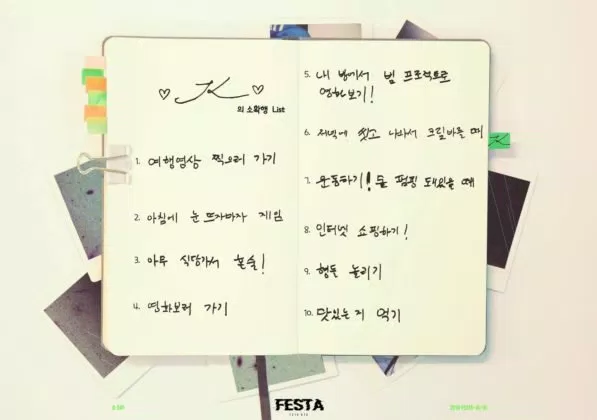 ♡ JK ♡
의 소확행 List
1. 여행영상 찍으러 가기
2. 아침에 눈뜨자마자 게임
3. 아무 식당가서 혼술!
4. 영화보러 가기
5. 내 방에서 빔 프로젝트로
영화보기!
6. 저녁에 씻고 나와서 크림바를 때
7. 운동하기! 둘 펌핑 돼있을 때
8. 인터넷 쇼핑하기!
9. 행돈 놀리기
10. 맛있는 거 먹기
FESTA